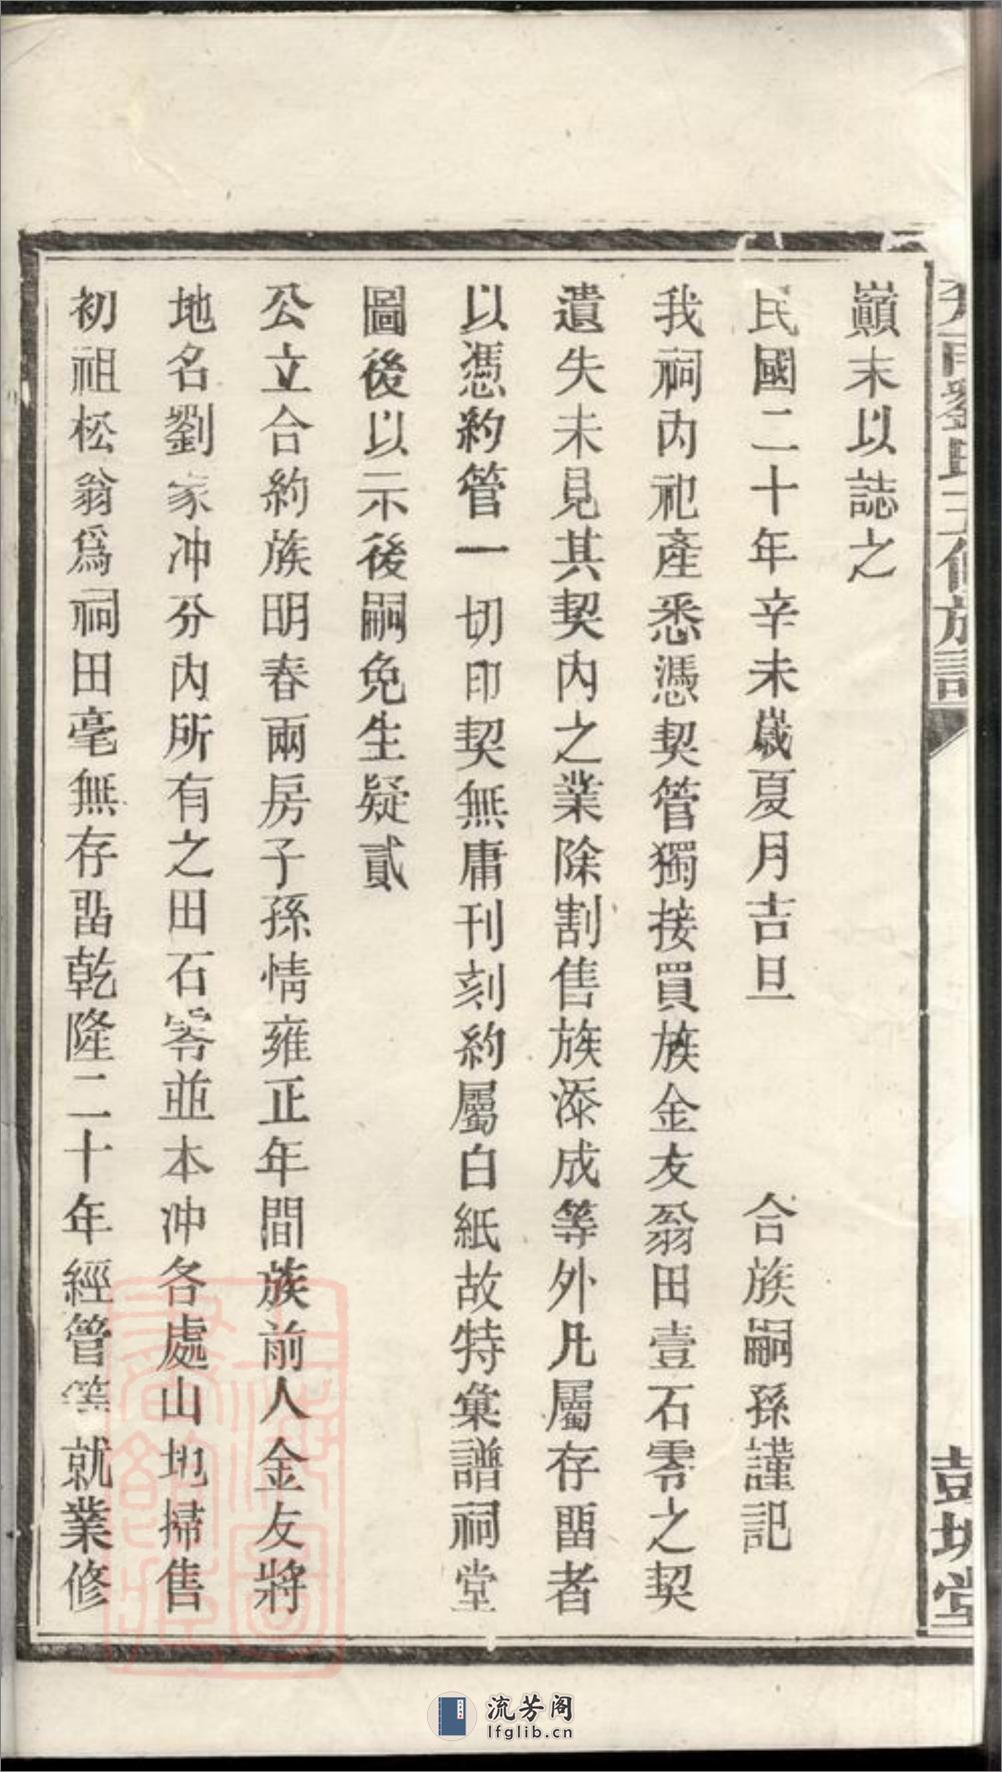 巔末以誌之
民國二十年辛未歲夏月吉旦　合族嗣孫謹記
我祠內祀產悉憑契管獨接買族金友翁田壹石零之契
遺失未見其契內之業除割售族添成等外凡屬存畱者
以憑約管一切印契無庸刊刻約屬白紙故特彙譜祠堂
圖後以示後嗣免生疑貳
公立合約族明春兩房子孫情雍正年間族前人金友將
地名劉家冲分內所有之田石零並本冲各處山地掃售
初祖松翁爲祠田毫無存畱乾隆二十年經管等就業修
彭城堂
流芳阁
lfglib.cn